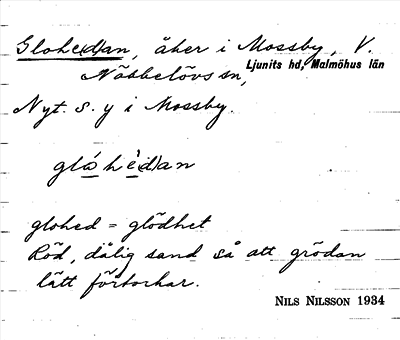 Glohe(d)an, åker i Mossby, V.
Nöbbelövs sn, Ljunits hd, Malmöhus län
Nyt. S. y i Mossby.
glóhè(d)an
glohed = glödhet
Röd, dålig sand så att grödan
lätt förtorkar.
NILS NILSSON 1934